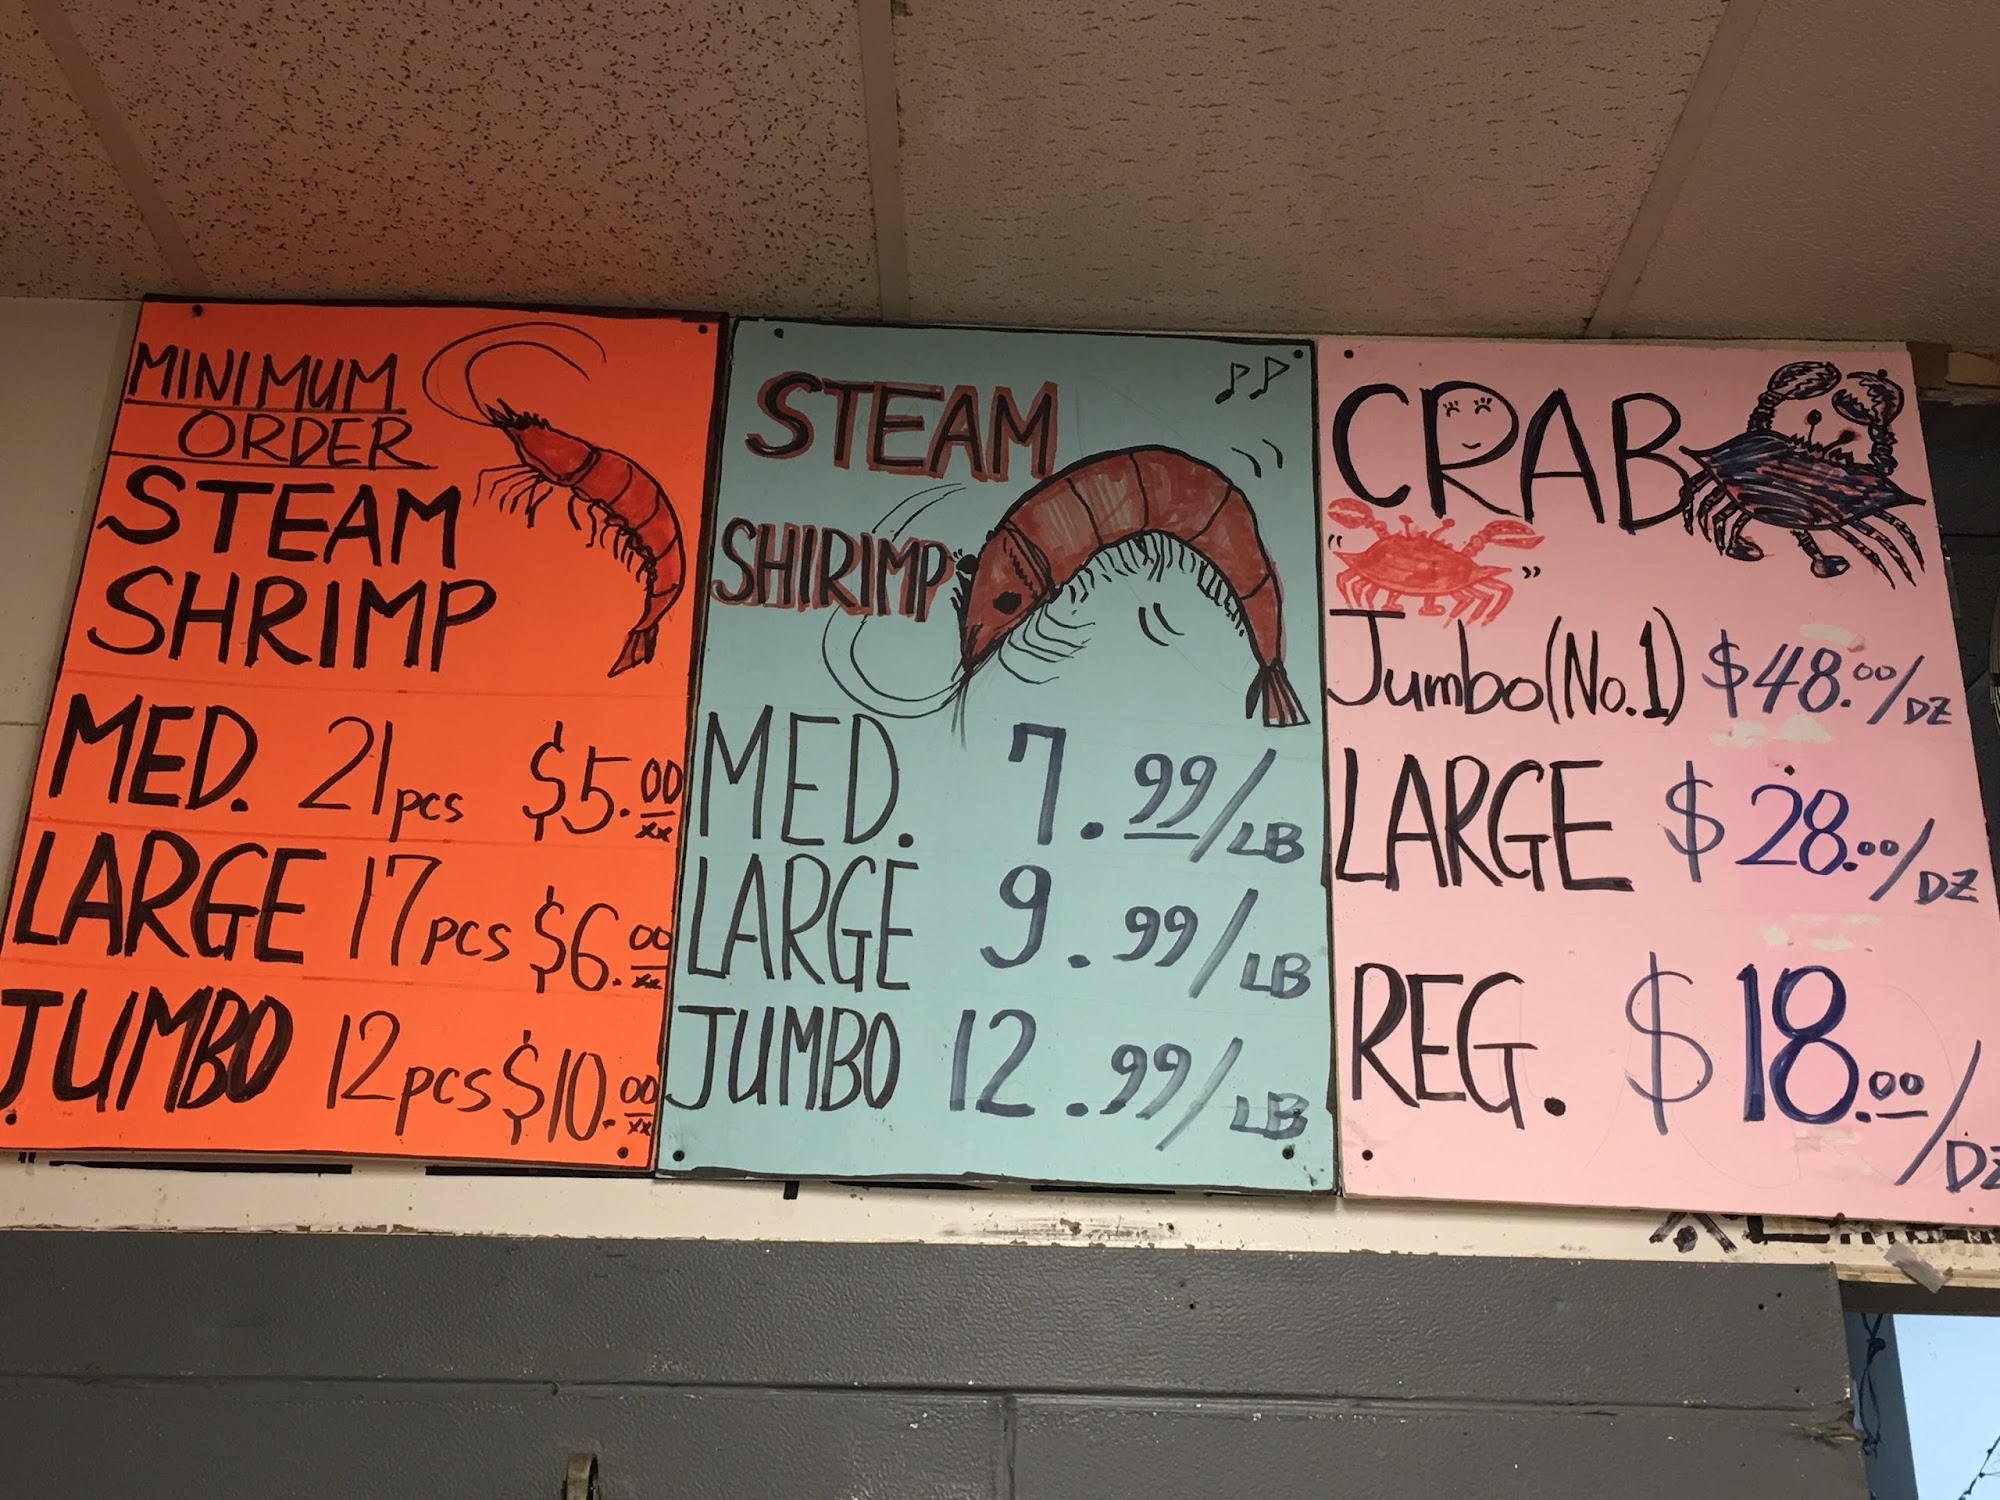 MINIMUM
ORDER
STEAM
SHRIMP
MED. 21 pcs $5.00 xx
LARGE 17 pcs $6.00 xx
JUMBO 12 pcs $10.00 xx
STEAM
SHIRIMP
MED. 7.99/LB
LARGE 9.99/LB
JUMBO 12.99/LB
CRAB
Jumbo (No.1) $48.00/DZ
LARGE $28.00/DZ
REG. $18.00/DZ